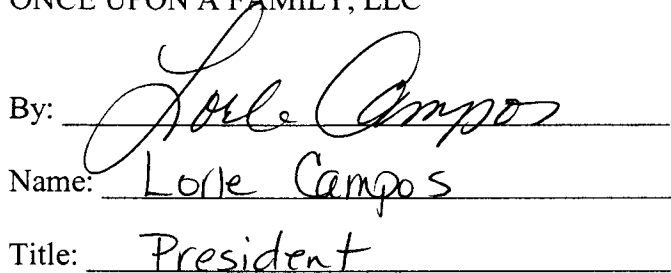 ONCE UPON A FAMILY, LLC
By: Lorle Campos
Name: Lorle Campos
Title: President